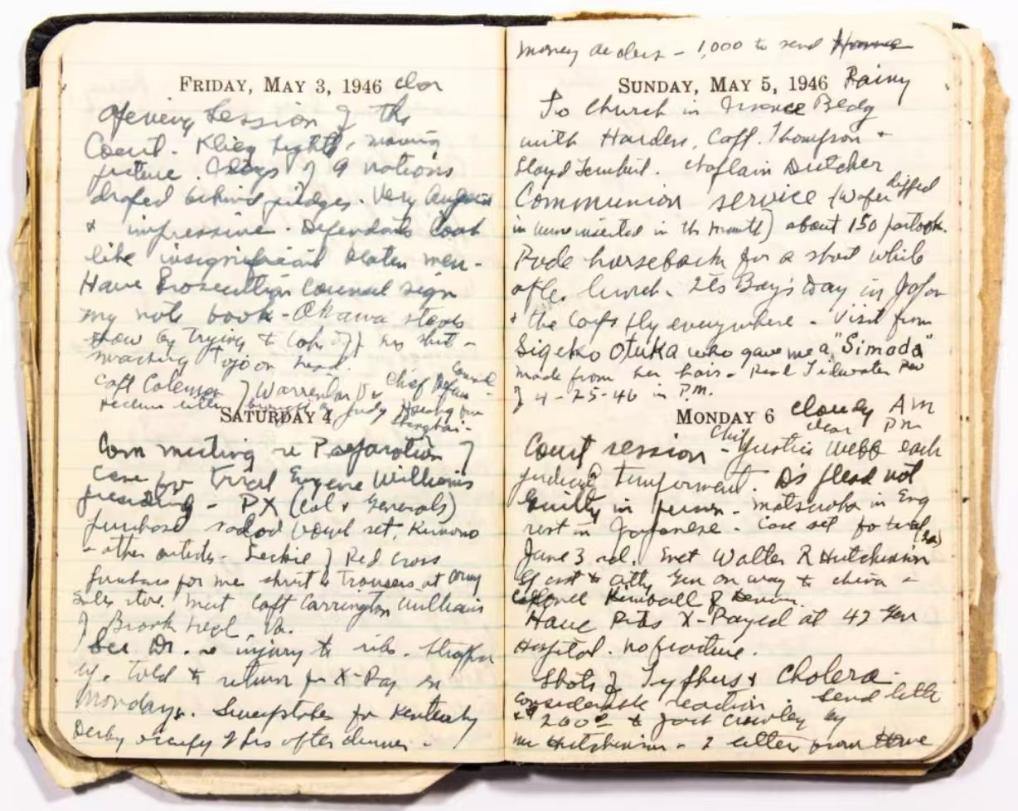 FRIDAY, MAY 3, 1946 clear
Opening Session of the
Court. Klieg lights, moving
picture. Flags of 9 nations
draped behind judges. Very
& impressive. Defendants look
like insignificant beaten men.
Have Prosecution Counsel sign
my note book - Okawa steals
show by trying to his shirt -
smacking Tojo on head.
Capt Coleman of Warrenton Va Chief Defense Counsel
Receive letter Judy
Shanghai.
SATURDAY 4
Com meeting re Preparation of
case for trial Eugene Williams
presiding - PX (Col & Generals)
purchase salad bowl set, Kimono
& other articles - Leckie of Red Cross
purchases for me shirt & trousers at army
sales store. Met Capt Carrington Williams
of Brook Va.
See Dr. re injury to ribs. Strapped
up. Told to return for X-Ray on
Monday. Sweepstakes for Kentucky
Derby occupy after dinner.
money orders - 1,000 to send Home
SUNDAY, MAY 5, 1946 Rainy
To Church in Bldg
with Harders, Capt. Thompson &
Lloyd Chaplain Dutcher
Communion service (Wafer dipped
in wine inserted in the mouth) about 150 partook.
Rode horseback for a short while
after lunch. It's Boy's Day in Japan
& the Carps fly everywhere - Visit from
Sigeko Otuka who gave me a "Simada"
made from her hair - Read Tidewater Rev
of 4-25-46 in P.M.
MONDAY 6 cloudy AM
clear PM
Court session - Chief Justice Webb each
judicial temperament. Ds plead not
Guilty in person. Matsuoka in Eng
rest in Japanese. Case set for trial
June 3rd. Met Walter R Hutchinson
asst to atty Gen on way to China -
Colonel Kimball
Have Ribs X-Rayed at 42 Gen
Hospital. No fracture.
Shots of Typhus & Cholera.
considerable reaction. Send letter
& $200 to Jack Crowley by
Mr Hutchinson - 2 letters from Home